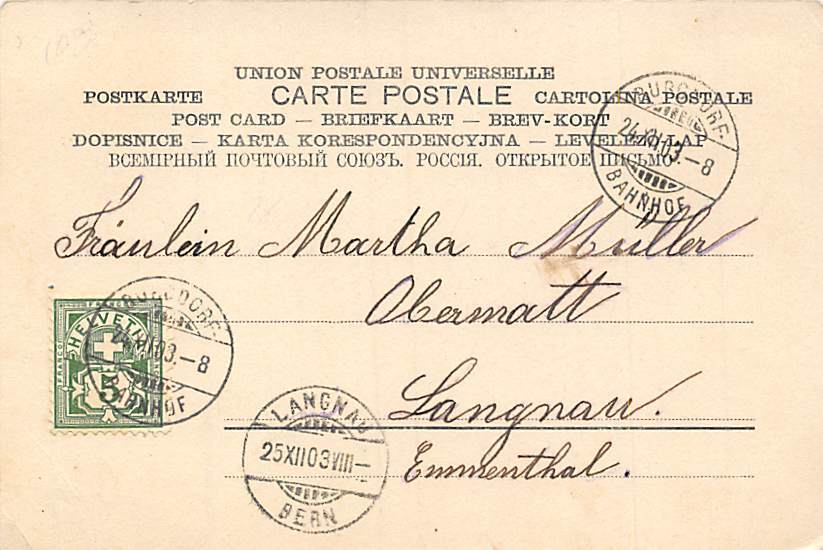 UNION POSTALE UNIVERSELLE
POSTKARTE CARTE POSTALE CARTOLINA POSTALE
POST CARD — BRIEFKAART — BREV-KORT
DOPISNICE — KARTA KORESPONDENCYJNA — LEVELEZŐ-LAP
ВСЕМІРНЫЙ ПОЧТОВЫЙ СОЮЗЪ. РОССІЯ. ОТКРЫТОЕ ПИСЬМО
BURGDORF
24.XII.03.–8
BAHNHOF
Fräulein Martha Müller
Obermatt
Langnau.
Emmenthal.
FRANCO
HELVETIA
5
BURGDORF
24.XII.03.–8
BAHNHOF
LANGNAU
25XII03VIII–
BERN